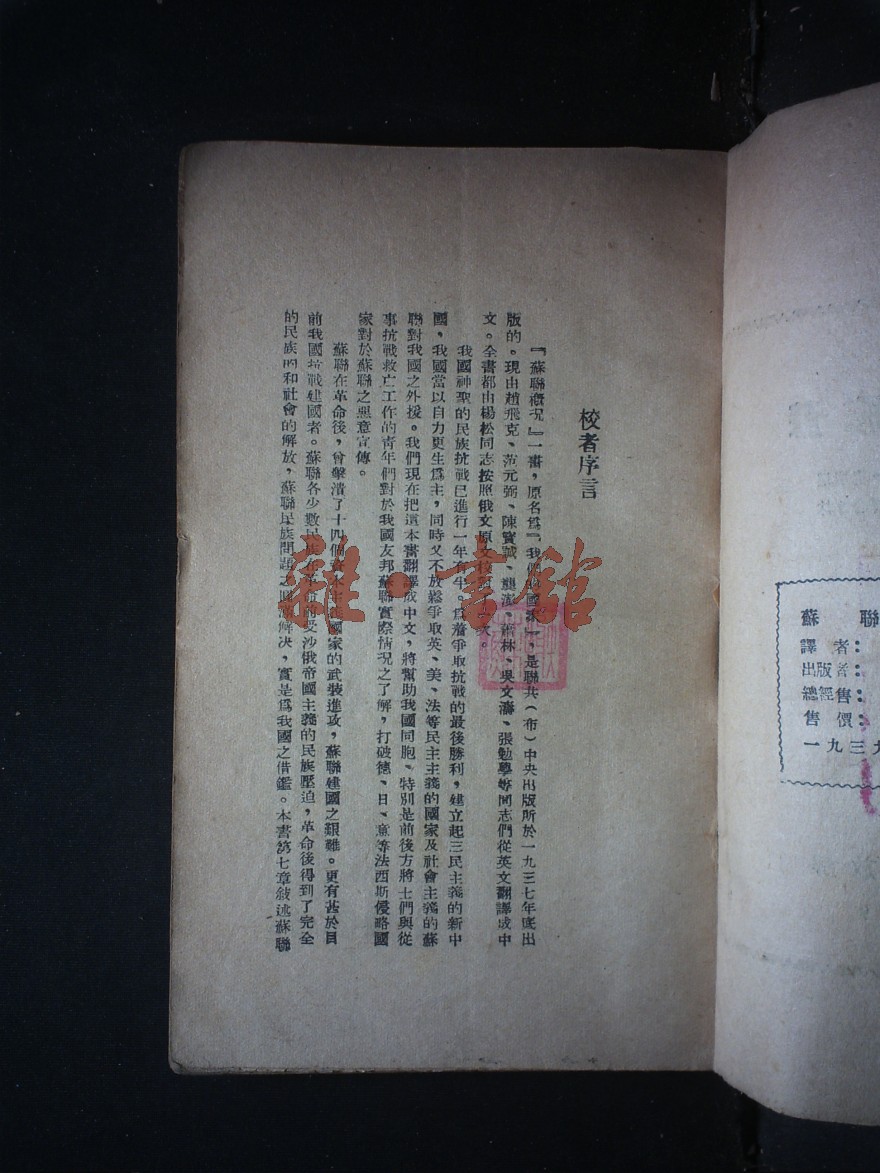 蘇聯
譯者：
出版者：
總經售：
售價：
一九三九
校者序言
『蘇聯概況』一書，原名爲『我們的國家』，是聯共（布）中央出版所於一九三七年底出
版的。現由趙飛克、范元弼、陳寶諴、龔澎、蕭林、吳文濤、張勉學等同志們從英文翻譯成中
文。全書都由楊松同志按照俄文原文校
我國神聖的民族抗戰已進行一年有半。爲着爭取抗戰的最後勝利，建立起三民主義的新中
國，我國當以自力更生爲主，同時又不放鬆爭取英、美、法等民主主義的國家及社會主義的蘇
聯對我國之外援。我們現在把這本書翻譯成中文，將幫助我國同胞、特別是前後方將士們與從
事抗戰救亡工作的青年們對於我國友邦蘇聯實際情況之了解，打破德、日、意等法西斯侵略國
家對於蘇聯之惡意宣傳。
蘇聯在革命後，曾擊潰了十四個資本主義國家的武裝進攻，蘇聯建國之艱難。更有甚於目
前我國抗戰建國者。蘇聯各少數民族在革命前受沙俄帝國主義的民族壓迫，革命後得到了完全
的民族的和社會的解放，蘇聯民族問題之圓滿解决，實是爲我國之借鑑。本書第七章敍述蘇聯
雜·書館